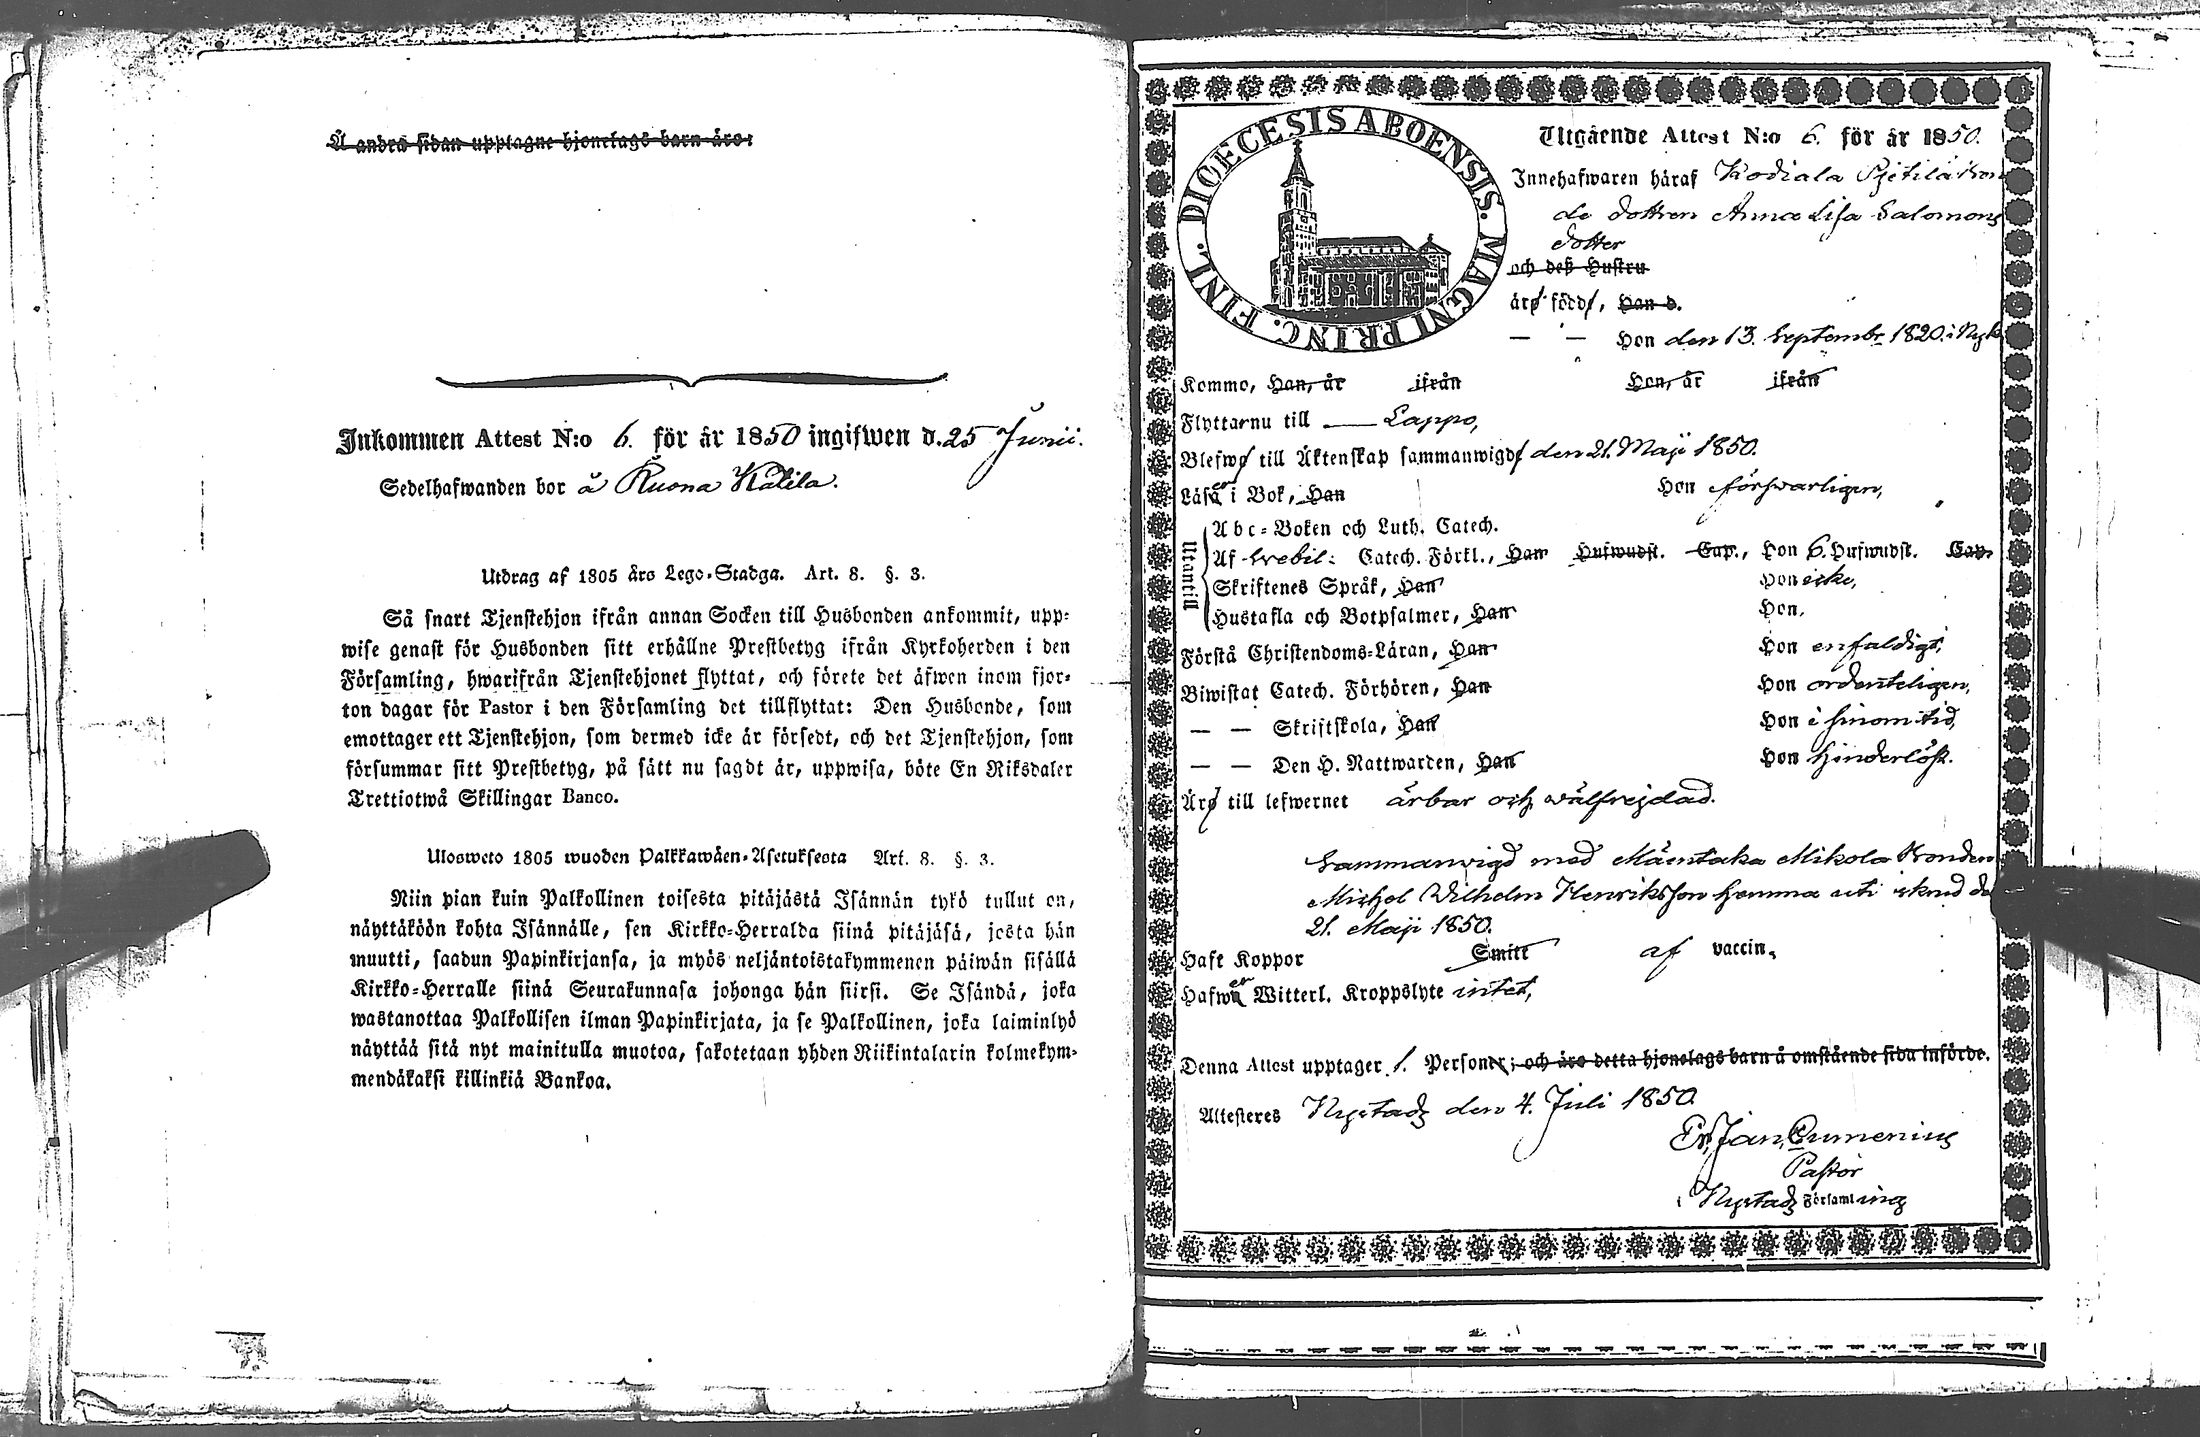 Å andra sidan upptagne hjonelags barn äro:
Inkommen Attest N:o 6. för år 1850 ingifwen d. 25 Junii.
Sedelhafwanden bor å Ruona Kälila.
Utdrag af 1805 års Lego-Stadga. Art. 8. §. 3.
Så snart Tjenstehjon ifrån annan Socken till Husbonden ankommit, upp-
wise genast för Husbonden sitt erhållne Prestbetyg ifrån Kyrkoherden i den
Församling, hwarifrån Tjenstehjonet flyttat, och förete det äfwen inom fjor-
ton dagar för Pastor i den Församling det tillflyttat: Den Husbonde, som
emottager ett Tjenstehjon, som dermed icke är försedt, och det Tjenstehjon, som
försummar sitt Prestbetyg, på sätt nu sagdt är, uppwisa, böte En Riksdaler
Trettiotwå Skillingar Banco.
Ulosweto 1805 wuoden Palkkawäen-Asetuksesta Art. 8. §. 3.
Niin pian kuin Palkollinen toisesta pitäjästä Isännän tykö tullut on,
näyttäköön kohta Isännälle, sen Kirkko-Herralda siinä pitäjäsä, josta hän
muutti, saadun Papinkirjansa, ja myös neljäntoistakymmenen päiwän sisällä
Kirkko-Herralle siinä Seurakunnasa johonga hän siirsi. Se Isändä, joka
wastanottaa Palkollisen ilman Papinkirjata, ja se Palkollinen, joka laiminlyö
näyttää sitä nyt mainitulla muotoa, sakotetaan yhden Riikintalarin kolmekym-
mendäkaksi killinkiä Bankoa.
DIOECESIS ABOENSIS. MAGNI PRINC. FINL.
Utgående Attest N:o 6. för år 1850.
Innehafwaren häraf Kodiala Pjetilä bon
de dottren Anna Lisa Salomons
dotter
och deß Hustru
äro född, Han d.
— — Hon den 13. Septembr 1820. i Nyk
Kommo, Han, år ifrån Hon, år ifrån
Flyttarnu till — Lappo,
Blefwo till Äktenskap sammanwigde den 21. Maji 1850.
Läsa i Bok, Han Hon försvarligen,
Utantill
Abc-Boken och Luth. Catech.
Af Svebil: Catech. Förkl., Han Hufwudst. Cap., Hon 6. Hufwudst. Cap.
Skriftenes Språk, Han Hon icke,
Hustafla och Botpsalmer, Han Hon,
Förstå Christendoms-Läran, Han Hon enfaldigt,
Biwistat Catech. Förhören, Han Hon ordenteligen,
— — Skriftskola, Han Hon i sinom tid,
— — Den H. Nattwarden, Han Hon hinderlöst.
Äro till lefwernet ärbar och wälfrejdad.
Sammanvigd med Mäentaka Mikola Bonden
Michel Wilhelm Henriksson hemma uti
21. Maji 1850.
Haft Koppor Smitt af vaccin,
Hafwa Witterl. Kroppslyte intet,
Denna Attest upptager 1. Personer; och äro detta hjonelags barn å omstående sida införde.
Attesteres Nystad den 4. Juli 1850.
Er. Jan. Cumenius
Pastor
i Nystads Församling